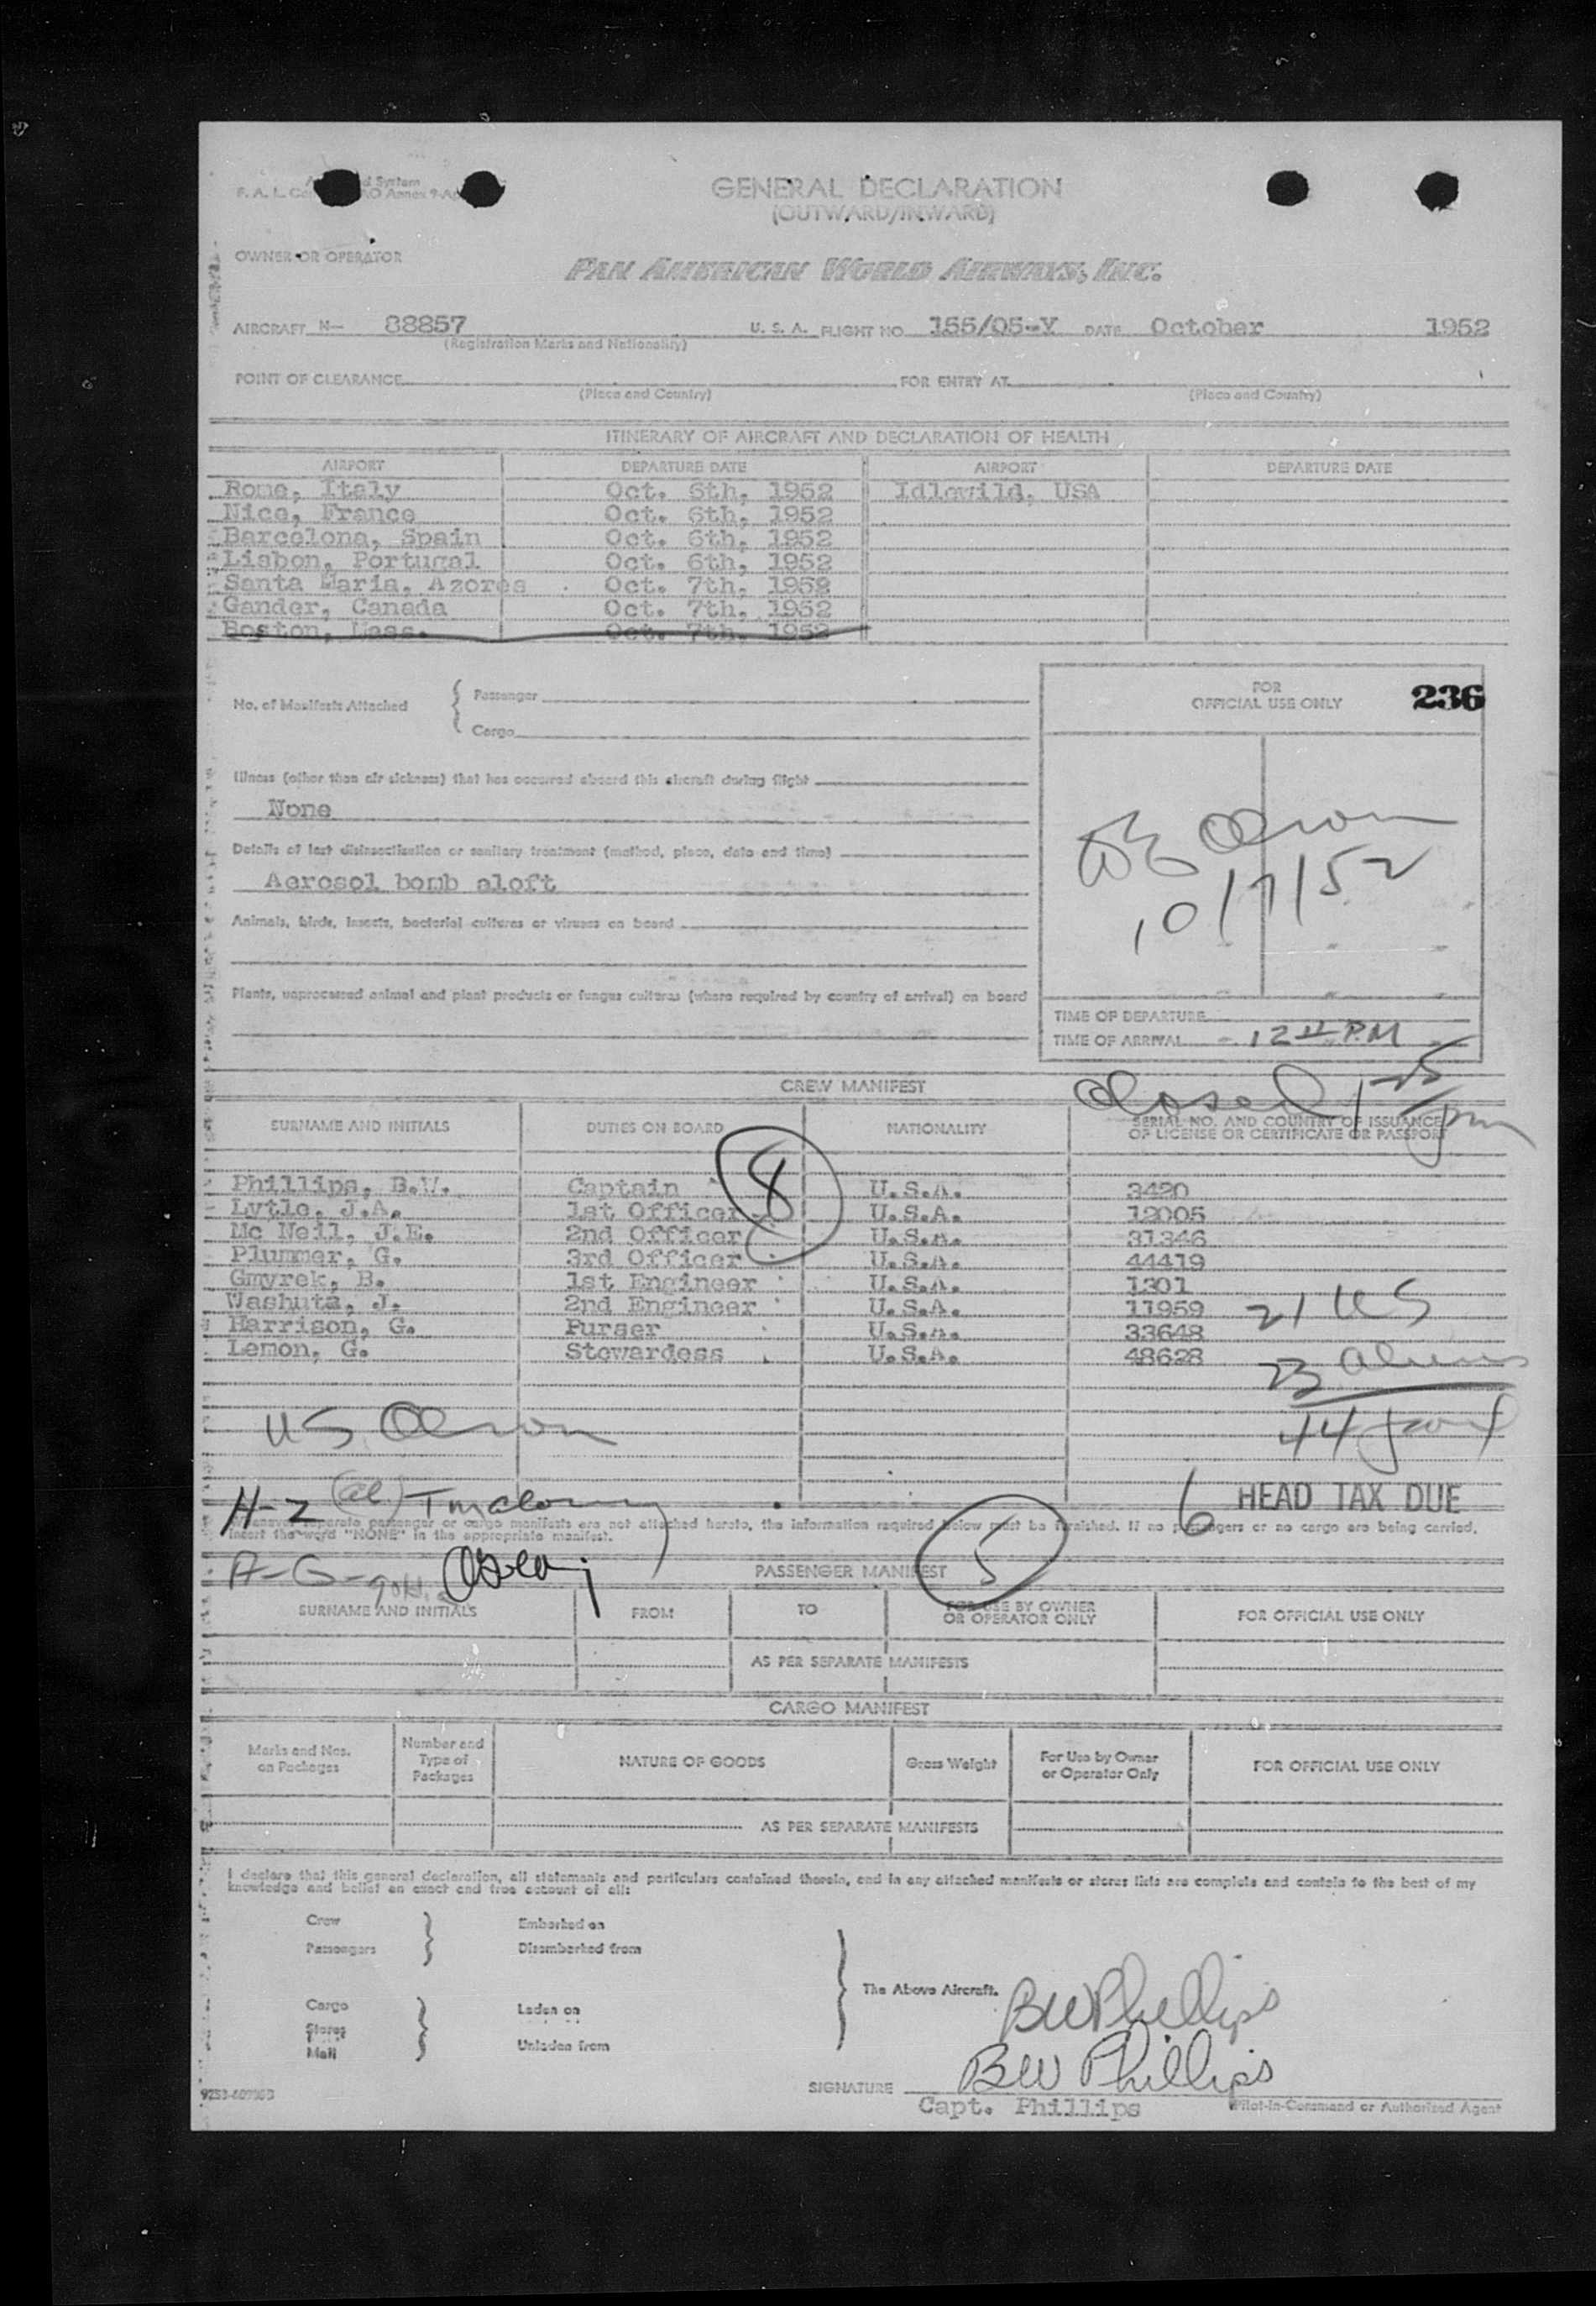 d System
F. A. L. O Annex 9-A
GENERAL DECLARATION
(OUTWARD/INWARD)
OWNER OR OPERATOR
PAN AMERICAN WORLD AIRWAYS, INC.
AIRCRAFT N- 88857 U. S. A. FLIGHT NO. 155/05-Y DATE October 1952
(Registration Marks and Nationality)
POINT OF CLEARANCE FOR ENTRY AT
(Place and Country) (Place and Country)
ITINERARY OF AIRCRAFT AND DECLARATION OF HEALTH
AIRPORT DEPARTURE DATE AIRPORT DEPARTURE DATE
Rome, Italy Oct. 6th, 1952 Idlewild, USA
Nice, France Oct. 6th, 1952
Barcelona, Spain Oct. 6th, 1952
Lisbon, Portugal Oct. 6th, 1952
Santa Maria, Azores Oct. 7th, 1952
Gander, Canada Oct. 7th, 1952
Boston, Mass. Oct. 7th, 1952
FOR
OFFICIAL USE ONLY 236
No. of Manifests Attached { Passenger
Cargo
Illness (other than air sickness) that has occurred aboard this aircraft during flight
None
Details of last disinsectisation or sanitary treatment (method, place, date and time)
Aerosol bomb aloft
Olson
10/7/52
Animals, birds, insects, bacterial cultures or viruses on board
Plants, unprocessed animal and plant products or fungus cultures (where required by country of arrival) on board
TIME OF DEPARTURE
TIME OF ARRIVAL 12 PM
CREW MANIFEST
Closed 1 25 pm
SURNAME AND INITIALS DUTIES ON BOARD NATIONALITY SERIAL NO. AND COUNTRY OF ISSUANCE
OF LICENSE OR CERTIFICATE OR PASSPORT
8
Phillips, B.W. Captain U.S.A. 3420
Lytle, J.A. 1st Officer U.S.A. 12005
Mc Neil, J.E. 2nd Officer U.S.A. 31346
Plummer, G. 3rd Officer U.S.A. 44419
Gmyrek, B. 1st Engineer U.S.A. 1301
Washuta, J. 2nd Engineer U.S.A. 11959
Harrison, G. Purser U.S.A. 33648
Lemon, G. Stewardess U.S.A. 48628
21 US
23 Aliens
44
US Olson
H-2 (al.)
6 HEAD TAX DUE
separate passenger or cargo manifests are not attached hereto, the information required below must be furnished. If no passengers or no cargo are being carried,
insert the word "NONE" in the appropriate manifest.
A-G-
5
PASSENGER MANIFEST
SURNAME AND INITIALS FROM TO FOR USE BY OWNER
OR OPERATOR ONLY FOR OFFICIAL USE ONLY
AS PER SEPARATE MANIFESTS
CARGO MANIFEST
Marks and Nos.
on Packages Number and
Type of
Packages NATURE OF GOODS Gross Weight For Use by Owner
or Operator Only FOR OFFICIAL USE ONLY
AS PER SEPARATE MANIFESTS
I declare that this general declaration, all statements and particulars contained therein, and in any attached manifests or stores lists are complete and contain to the best of my
knowledge and belief an exact and true account of all:
Crew Embarked on
Passengers Disembarked from
The Above Aircraft.
Cargo Laden on
Stores
Mail Unladen from
BW Phillips
SIGNATURE BW Phillips
Capt. Phillips Pilot-in-Command or Authorized Agent